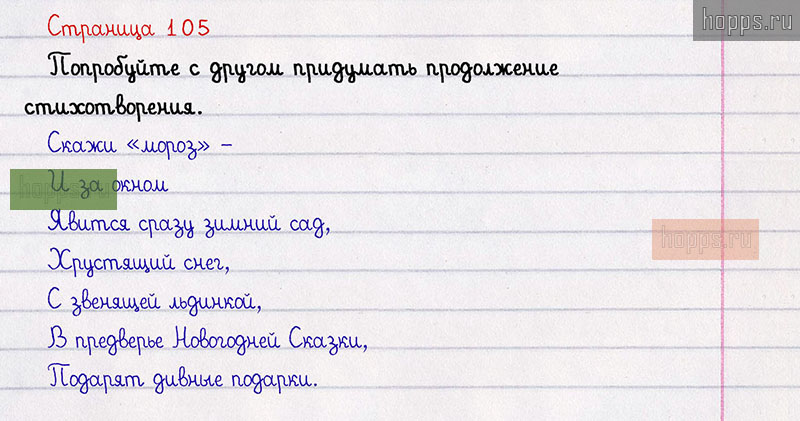 Страница 105
hopps.ru
Попробуйте с другом придумать продолжение
стихотворения.
Скажи «мороз» –
И за окном
hopps.ru
Явится сразу зимний сад,
hopps.ru
Хрустящий снег,
С звенящей льдинкой,
В предверье Новогодней Сказки,
Подарят дивные подарки.